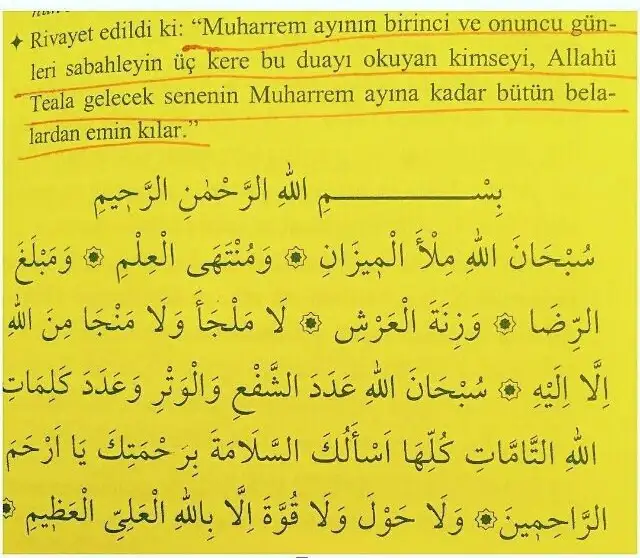 ✦ Rivayet edildi ki: “Muharrem ayının birinci ve onuncu gün-
leri sabahleyin üç kere bu duayı okuyan kimseyi, Allahü
Teala gelecek senenin Muharrem ayına kadar bütün bela-
lardan emin kılar.”
بِسْــــــــــمِ اللهِ الرَّحْمٰنِ الرَّحِيمِ
سُبْحَانَ اللهِ مِلْأَ الْمِيزَانِ ۞ وَمُنْتَهَى الْعِلْمِ ۞ وَمَبْلَغَ
الرِّضَا ۞ وَزِنَةَ الْعَرْشِ ۞ لَا مَلْجَأَ وَلَا مَنْجَا مِنَ اللهِ
اِلَّا اِلَيْهِ ۞ سُبْحَانَ اللهِ عَدَدَ الشَّفْعِ وَالْوَتْرِ وَعَدَدَ كَلِمَاتِ
اللهِ التَّامَّاتِ كُلِّهَا اَسْأَلُكَ السَّلَامَةَ بِرَحْمَتِكَ يَا اَرْحَمَ
الرَّاحِمِينَ ۞ وَلَا حَوْلَ وَلَا قُوَّةَ اِلَّا بِاللهِ الْعَلِيِّ الْعَظِيمِ ۞